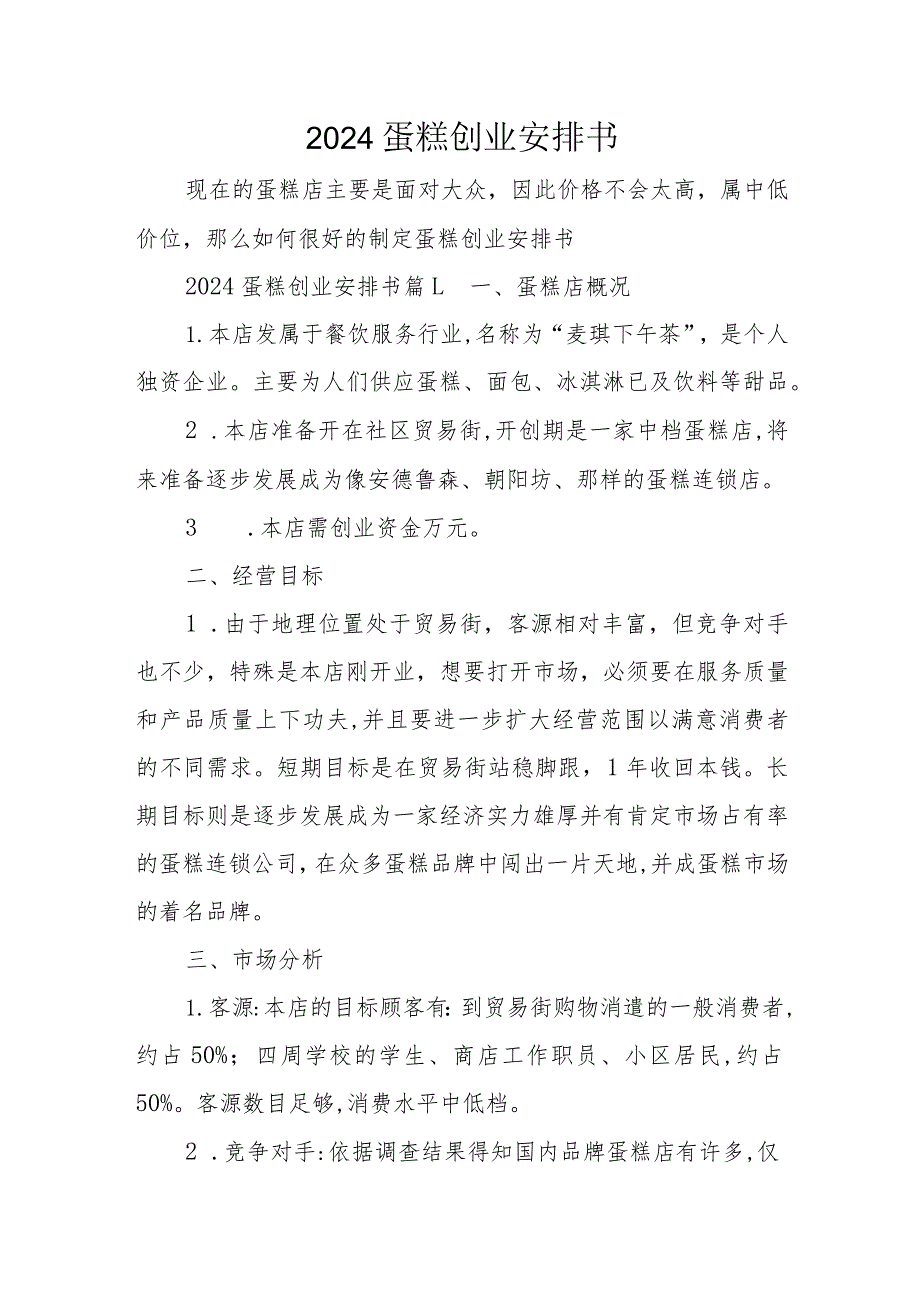 2024 蛋糕创业安排书
现在的蛋糕店主要是面对大众，因此价格不会太高，属中低
价位，那么如何很好的制定蛋糕创业安排书
2024 蛋糕创业安排书篇 L　一、蛋糕店概况
1.本店发属于餐饮服务行业,名称为“麦琪下午茶”，是个人
独资企业。主要为人们供应蛋糕、面包、冰淇淋已及饮料等甜品。
2 .本店准备开在社区贸易街,开创期是一家中档蛋糕店,将
来准备逐步发展成为像安德鲁森、朝阳坊、那样的蛋糕连锁店。
3　.本店需创业资金万元。
二、经营目标
1 .由于地理位置处于贸易街，客源相对丰富，但竞争对手
也不少，特殊是本店刚开业，想要打开市场，必须要在服务质量
和产品质量上下功夫,并且要进一步扩大经营范围以满意消费者
的不同需求。短期目标是在贸易街站稳脚跟，1 年收回本钱。长
期目标则是逐步发展成为一家经济实力雄厚并有肯定市场占有率
的蛋糕连锁公司，在众多蛋糕品牌中闯出一片天地,并成蛋糕市场
的着名品牌。
三、市场分析
1.客源:本店的目标顾客有：到贸易街购物消遣的一般消费者，
约占 50%；四周学校的学生、商店工作职员、小区居民,约占
50%。客源数目足够,消费水平中低档。
2 .竞争对手:依据调查结果得知国内品牌蛋糕店有许多,仅